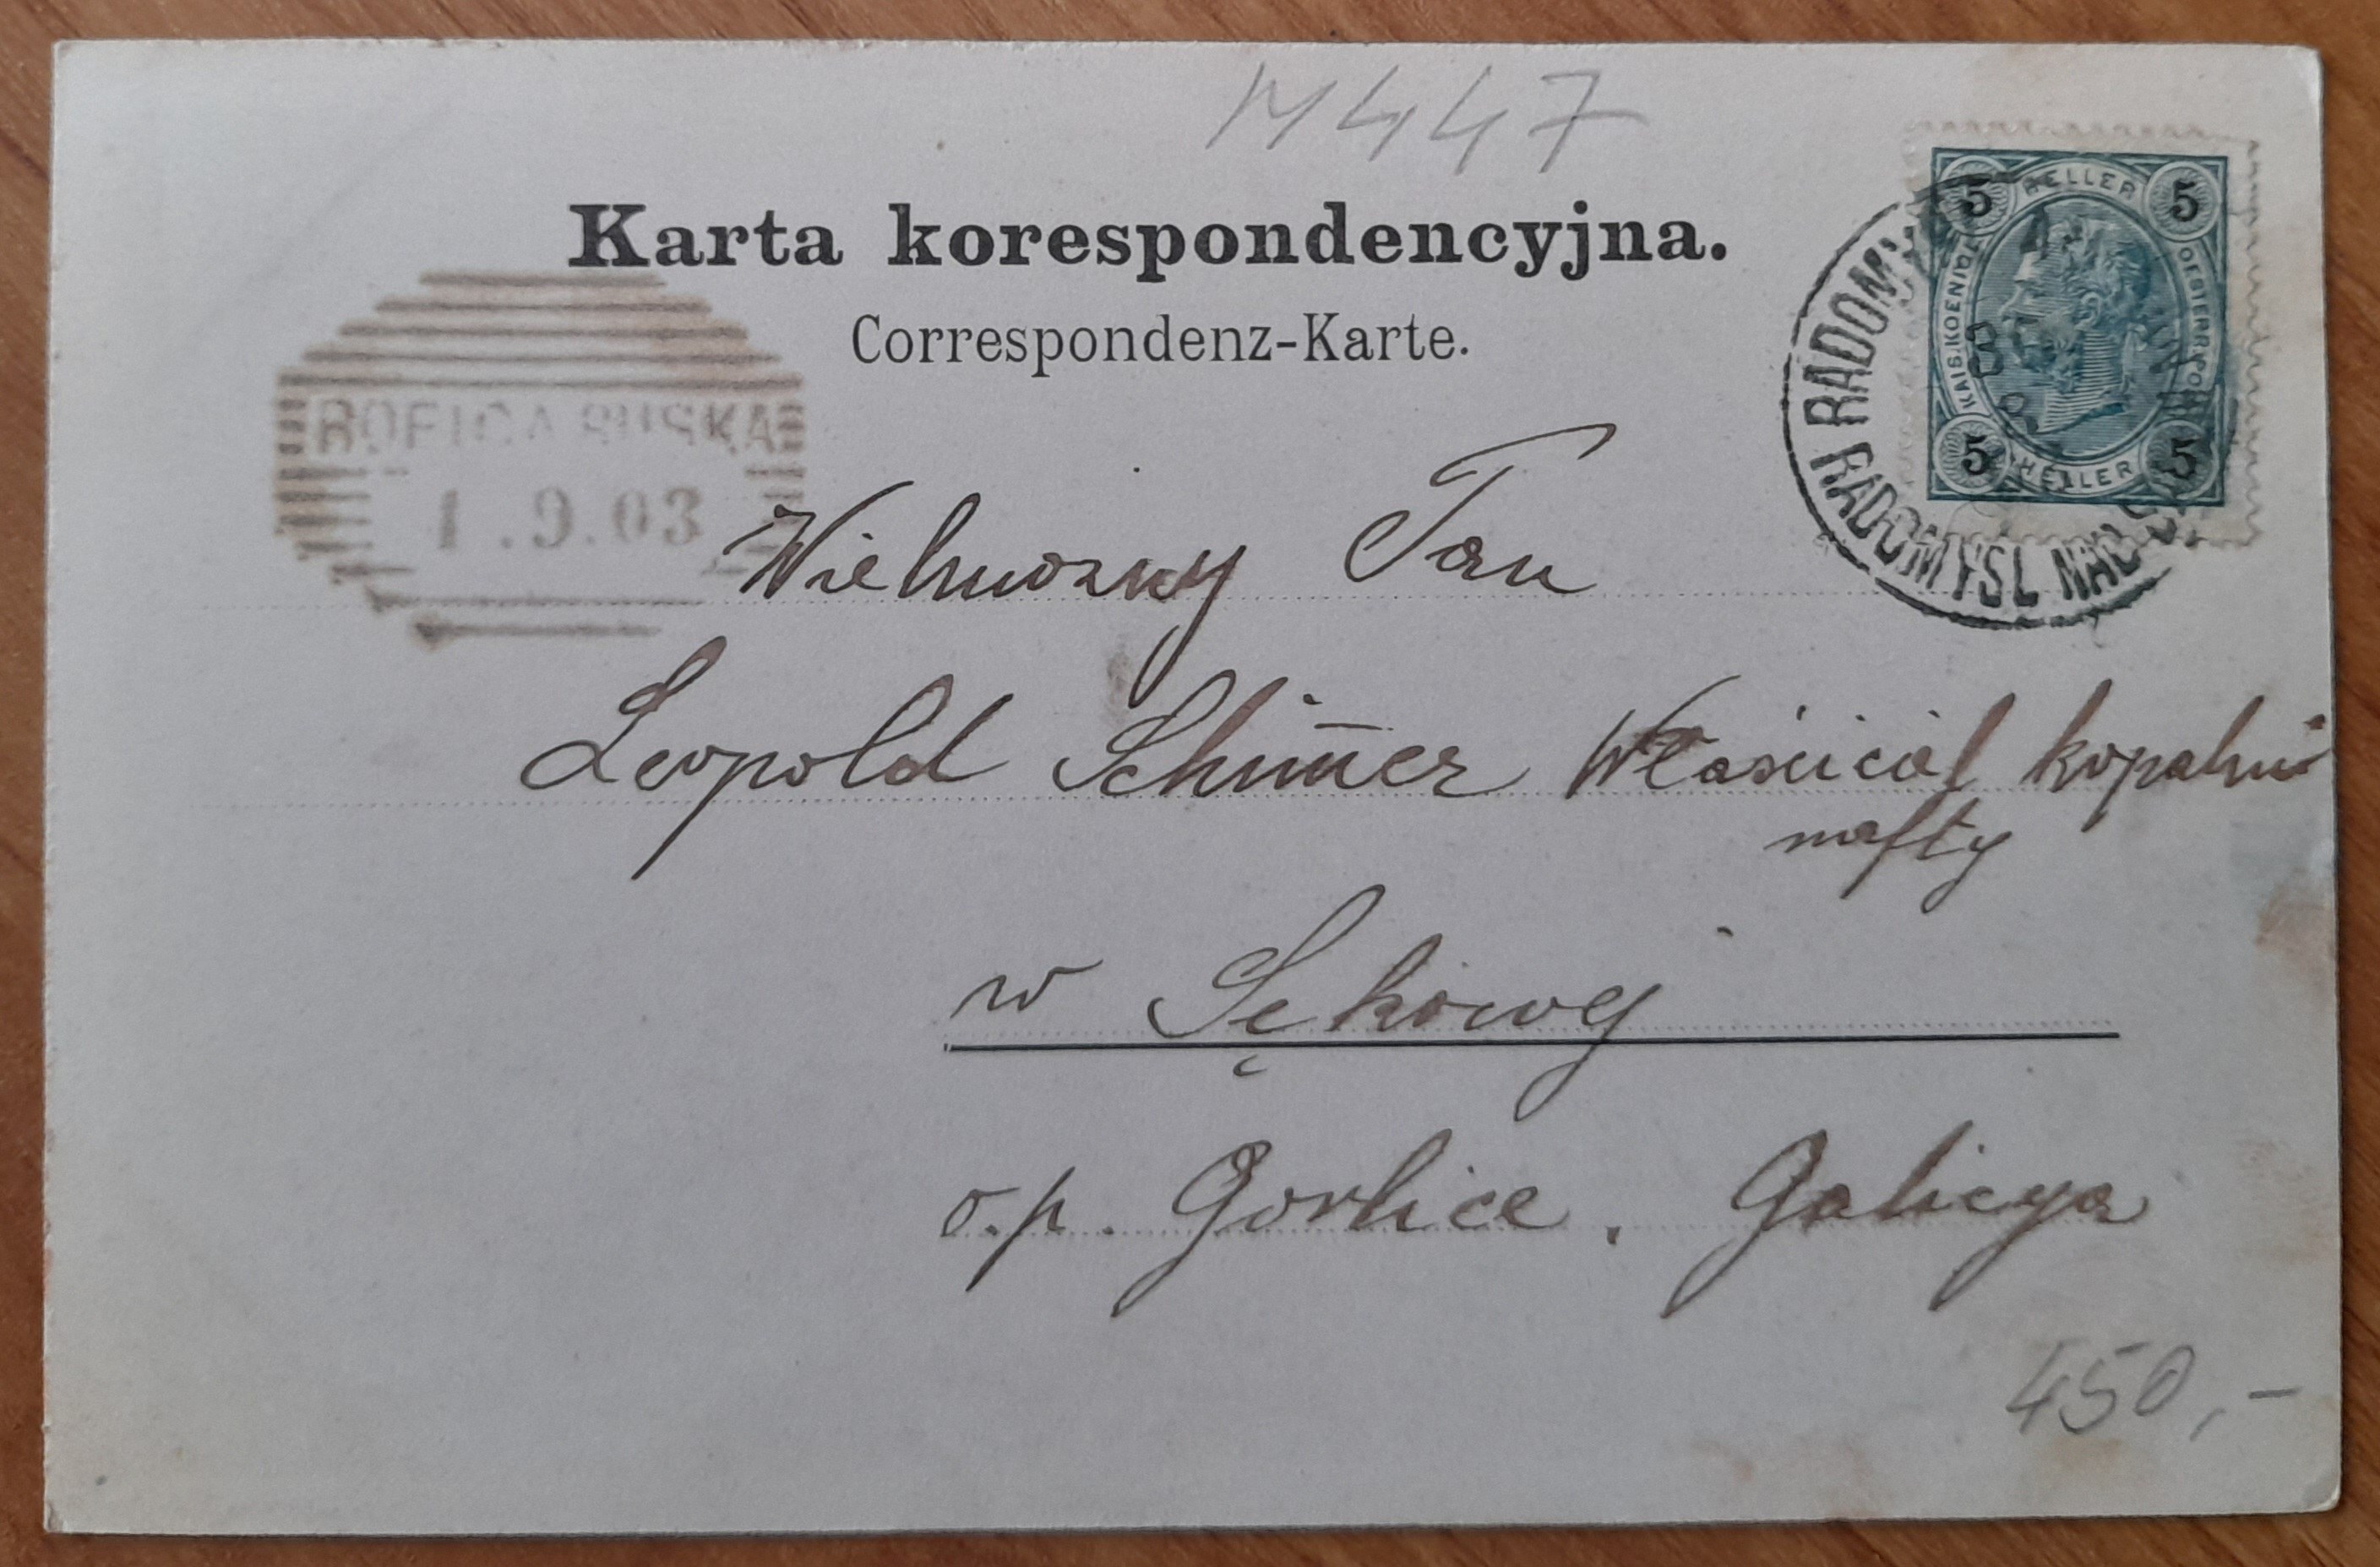 M447
Karta korespondencyjna.
Correspondenz-Karte.
5 HELLER 5
KAIS. KOENIGL. OESTERR. POST
5 HELLER 5
RADOMYSL NAD
ROPICA RUSKA
1.9.03
Wielmożny Pan
Leopold Schim̅er Właściciel kopalni
nafty
w Sękowej
o.p. Gorlice, Galicya
450,-